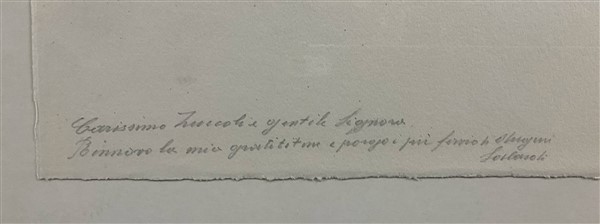 Carissimo Zuccoli e gentile Signora
Rinnovo la mia gratitudine e porgo i più fervidi Auguri